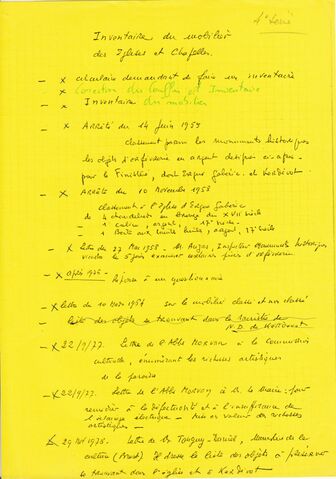 4e Série
Inventaire du mobilier
des Eglises et Chapelles.
- x circulaire demandant de faire un inventaire
- x Correction des Souffles et Inventaire
- x Inventaire du mobilier
- x Arrêté du 14 Juin 1959
classement parmi les monuments historiques
les objets d'orfèvrerie en argent désignés ci-après
pour le Finistère, dont Ergué Gabéric. et Kerdévot
- x Arrêté du 10 Novembre 1958
classements à l'Eglise d'Ergué Gabéric
de 4 chandeliers en bronze du XVII siècle
- 1 calice, argent, 17e siècle.
- 1 Boite aux saintes huiles, argent, 17 siècle
- x lettre du 27 Mai 1958. M. Auzas, Inspecteur Monuments historiques
viendra le 5 juin examiner
- x après 1926 - Réponse à un questionnaire
- x lettre du 10 Mars 1956 sur le mobilier classé et non classé
- liste des objets se trouvant dans la
N.D. de Kerdévot
- x 22/9/77. Lettre de l'Abbé Morvan à la Commission
culturelle, énumérant les richesses artistiques
de la paroisse
- x 22/9/77. Lettre de l'Abbé Morvan à M. le Maire : pour
remédier à la défectuosité et à l'insuffisance de
l'éclairage électrique - Mise en valeur des richesses
artistiques -
- x 29 Nov 1975. Lettre de Tanguy-Daniel,
culture (Brest) Il dresse la liste des objets à préserver
se trouvant dans l'église et à Kerdévot